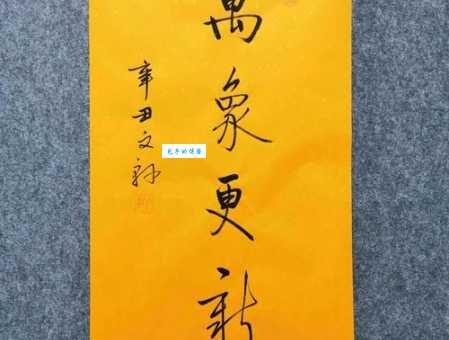 萬象更新
辛丑文